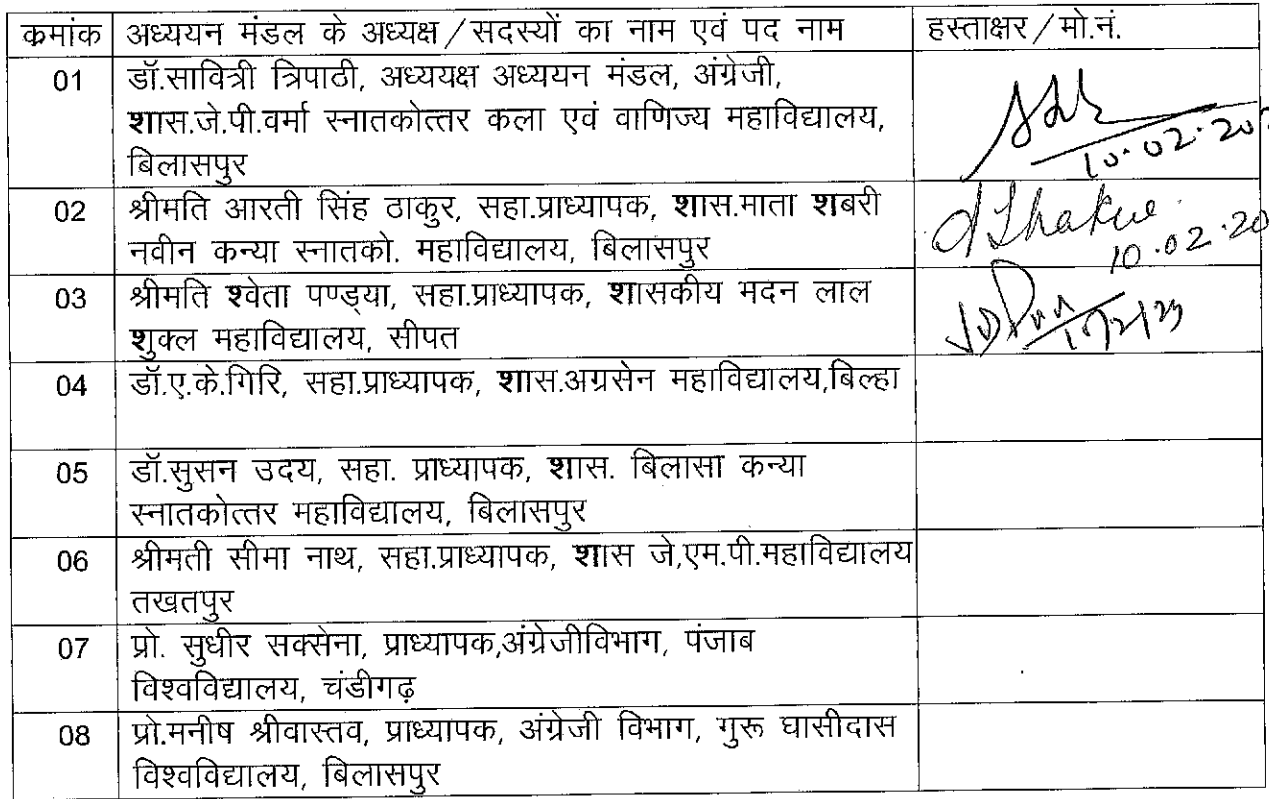 क्रमांक अध्ययन मंडल के अध्यक्ष / सदस्यों का नाम एवं पद नाम हस्ताक्षर / मो.नं.
01 डॉ.सावित्री त्रिपाठी, अध्ययक्ष अध्ययन मंडल, अंग्रेजी,
शास.जे.पी.वर्मा स्नातकोत्तर कला एवं वाणिज्य महाविद्यालय,
बिलासपुर
10.02.20
02 श्रीमति आरती सिंह ठाकुर, सहा.प्राध्यापक, शास.माता शबरी
नवीन कन्या स्नातको. महाविद्यालय, बिलासपुर
10.02.20
03 श्रीमति श्वेता पण्ड्या, सहा.प्राध्यापक, शासकीय मदन लाल
शुक्ल महाविद्यालय, सीपत
04 डॉ.ए.के.गिरि, सहा.प्राध्यापक, शास.अग्रसेन महाविद्यालय,बिल्हा
05 डॉ.सुसन उदय, सहा. प्राध्यापक, शास. बिलासा कन्या
स्नातकोत्तर महाविद्यालय, बिलासपुर
06 श्रीमती सीमा नाथ, सहा.प्राध्यापक, शास जे,एम.पी.महाविद्यालय
तखतपुर
07 प्रो. सुधीर सक्सेना, प्राध्यापक,अंग्रेजीविभाग, पंजाब
विश्वविद्यालय, चंडीगढ़
08 प्रो.मनीष श्रीवास्तव, प्राध्यापक, अंग्रेजी विभाग, गुरू घासीदास
विश्वविद्यालय, बिलासपुर